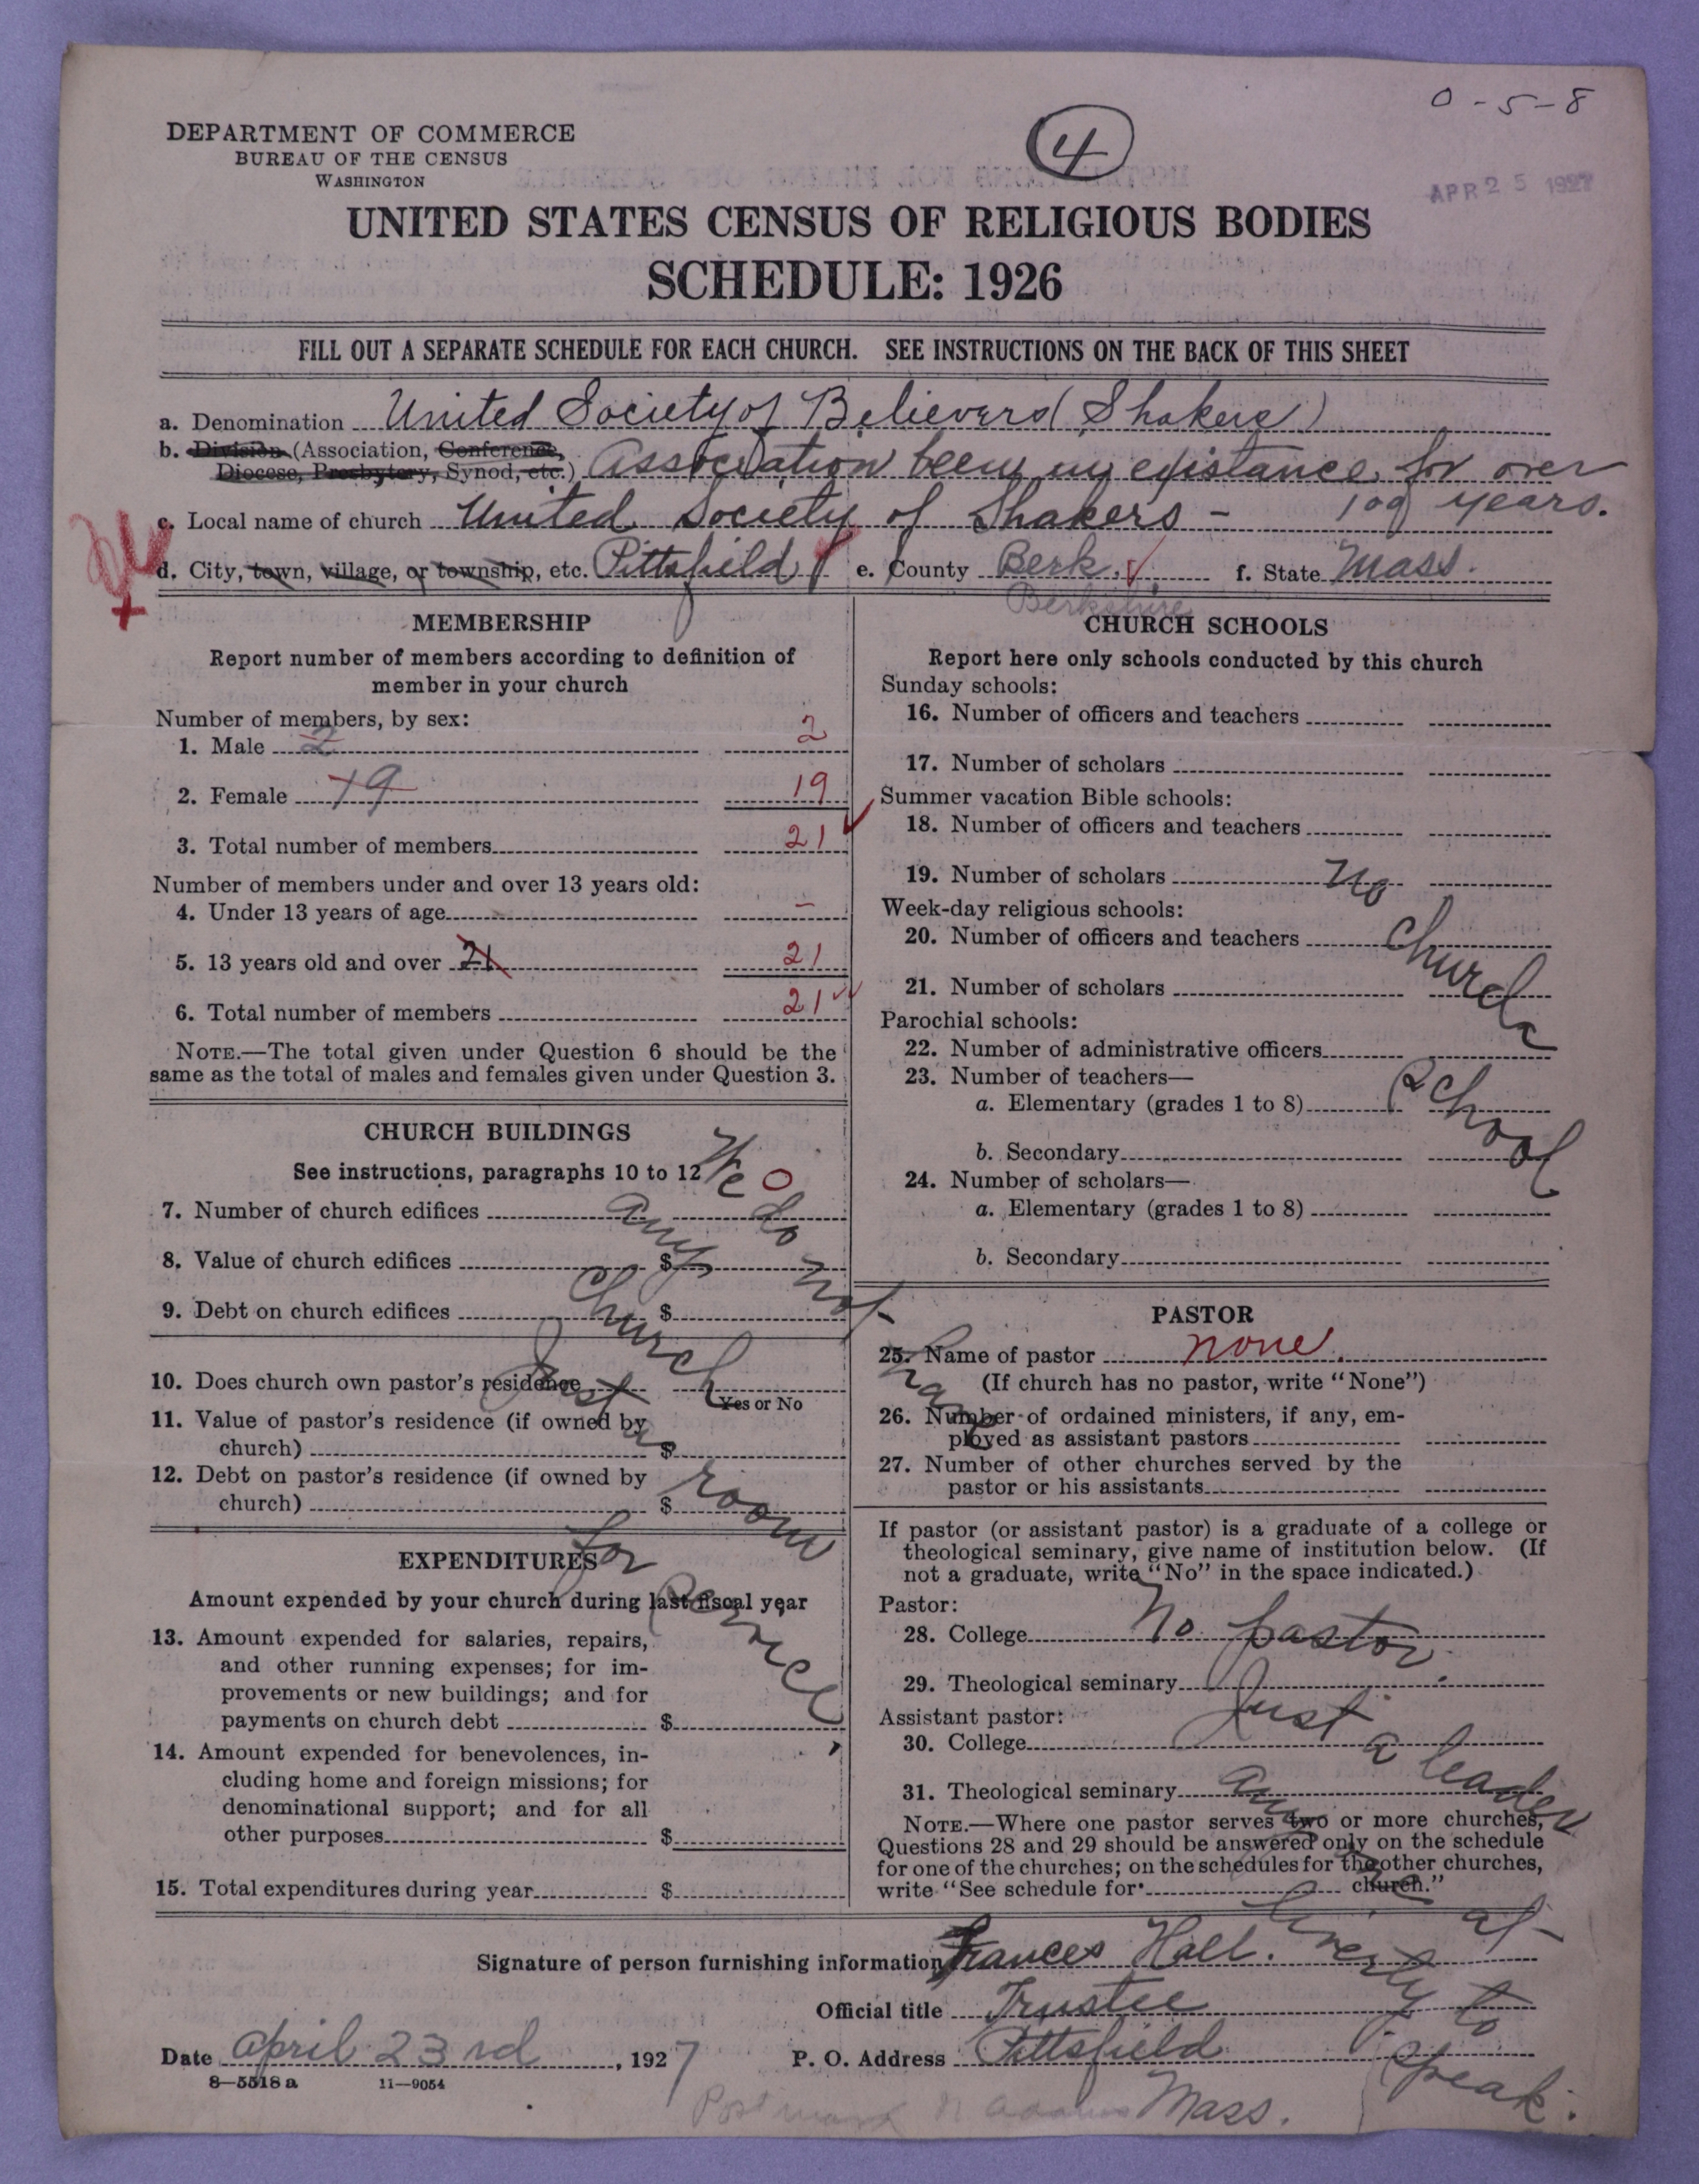 0-5-8
DEPARTMENT OF COMMERCE
BUREAU OF THE CENSUS
WASHINGTON
4
APR 25 1927
UNITED STATES CENSUS OF RELIGIOUS BODIES
SCHEDULE: 1926
FILL OUT A SEPARATE SCHEDULE FOR EACH CHURCH. SEE INSTRUCTIONS ON THE BACK OF THIS SHEET
a. Denomination United Society of Believers (Shakers)
b. Division (Association, Conference,
Diocese, Presbytery, Synod, etc.) Association been in existance for over
c. Local name of church United Society of Shakers - 109 years.
d. City, town, village, or township, etc. Pittsfield e. County Berk. f. State Mass.
Berkshire
MEMBERSHIP
Report number of members according to definition of
member in your church
Number of members, by sex:
1. Male 2 2
2. Female 19 19
3. Total number of members 21
Number of members under and over 13 years old:
4. Under 13 years of age -
5. 13 years old and over 21 21
6. Total number of members 21
NOTE.—The total given under Question 6 should be the
same as the total of males and females given under Question 3.
CHURCH BUILDINGS
See instructions, paragraphs 10 to 12
0
7. Number of church edifices
8. Value of church edifices $
9. Debt on church edifices $
10. Does church own pastor's residence
Yes or No
11. Value of pastor's residence (if owned by
church) $
12. Debt on pastor's residence (if owned by
church) $
We do not have
any church
Just a room
for Service
EXPENDITURES
Amount expended by your church during last fiscal year
13. Amount expended for salaries, repairs,
and other running expenses; for im-
provements or new buildings; and for
payments on church debt $
14. Amount expended for benevolences, in-
cluding home and foreign missions; for
denominational support; and for all
other purposes $
15. Total expenditures during year $
CHURCH SCHOOLS
Report here only schools conducted by this church
Sunday schools:
16. Number of officers and teachers
17. Number of scholars
Summer vacation Bible schools:
18. Number of officers and teachers
19. Number of scholars
Week-day religious schools:
20. Number of officers and teachers
21. Number of scholars
Parochial schools:
22. Number of administrative officers
23. Number of teachers—
a. Elementary (grades 1 to 8)
b. Secondary
24. Number of scholars—
a. Elementary (grades 1 to 8)
b. Secondary
No church School
PASTOR
25. Name of pastor none
(If church has no pastor, write "None")
26. Number of ordained ministers, if any, em-
ployed as assistant pastors
27. Number of other churches served by the
pastor or his assistants
If pastor (or assistant pastor) is a graduate of a college or
theological seminary, give name of institution below. (If
not a graduate, write "No" in the space indicated.)
Pastor:
28. College
29. Theological seminary
Assistant pastor:
30. College
31. Theological seminary
No pastor.
Just a leader
any one at
liverty to
speak.
NOTE.—Where one pastor serves two or more churches,
Questions 28 and 29 should be answered only on the schedule
for one of the churches; on the schedules for the other churches,
write "See schedule for church."
Signature of person furnishing information Frances Hall.
Official title Trustee
Date April 23rd, 1927 P. O. Address Pittsfield
8—5518 a 11—9054
Mass.
Postmark N Adams